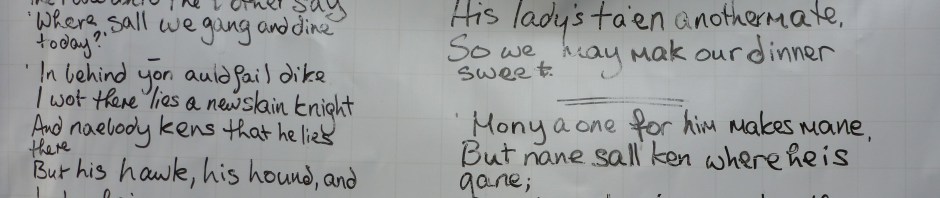 other say
'Where sall we gang and dine
today?'
'In behind yon auld fail dike
I wot there lies a new slain knight
And naebody kens that he lies
there
But his hawk, his hound, and
His lady's ta'en another mate,
So we may mak our dinner
sweet.
'Mony a one for him makes mane,
But nane sall ken where he is
gane;